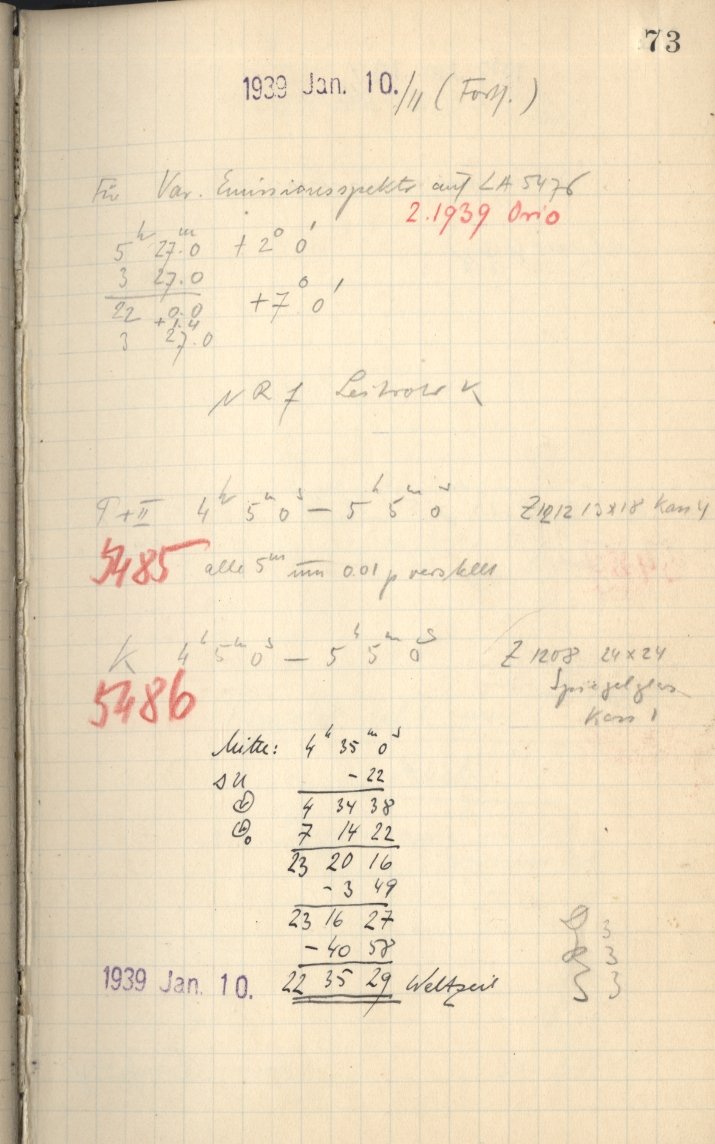 73
1939 Jan. 10./II (Forts.)
Für Var. Emissionsspektr auf LA 5476
2.1939 Orio
5ʰ 27ᵐ.0 +2° 0'
3 27.0
22 0.0 +7° 0'
+1.4
3 27.0
NR f Leitrohr K
T+II 4ʰ 5ᵐ 0ˢ — 5ʰ 5ᵐ 0ˢ Z1212 13×18 Kass 4
5485 alle 5ᵐ um 0.01 p verstellt
K 4ʰ 5ᵐ 0ˢ — 5ʰ 5ᵐ 0ˢ Z 1208 24×24
5486 Spiegelglas
Kass 1
Mitte: 4ʰ 35ᵐ 0ˢ
- 22
4 34 38
7 14 22
23 20 16
- 3 49
23 16 27
- 40 58
1939 Jan. 10. 22 35 29 Weltzeit
3
3
3